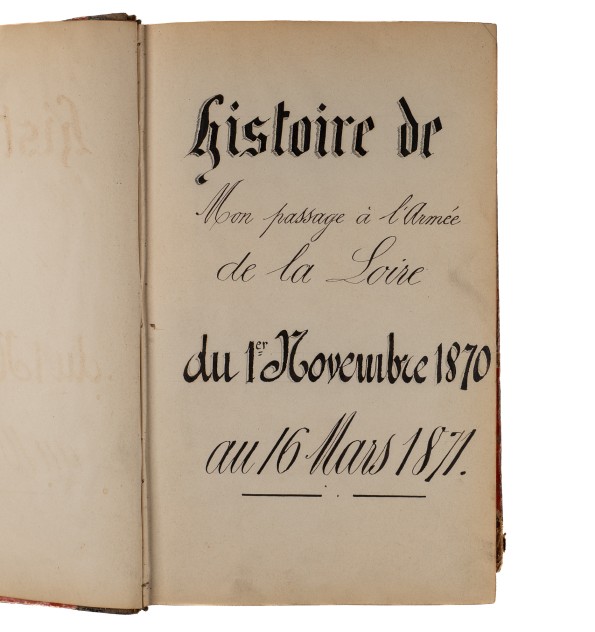 histoire de
Mon passage à l'Armée
de la Loire
du 1er Novembre 1870
au 16 Mars 1871.